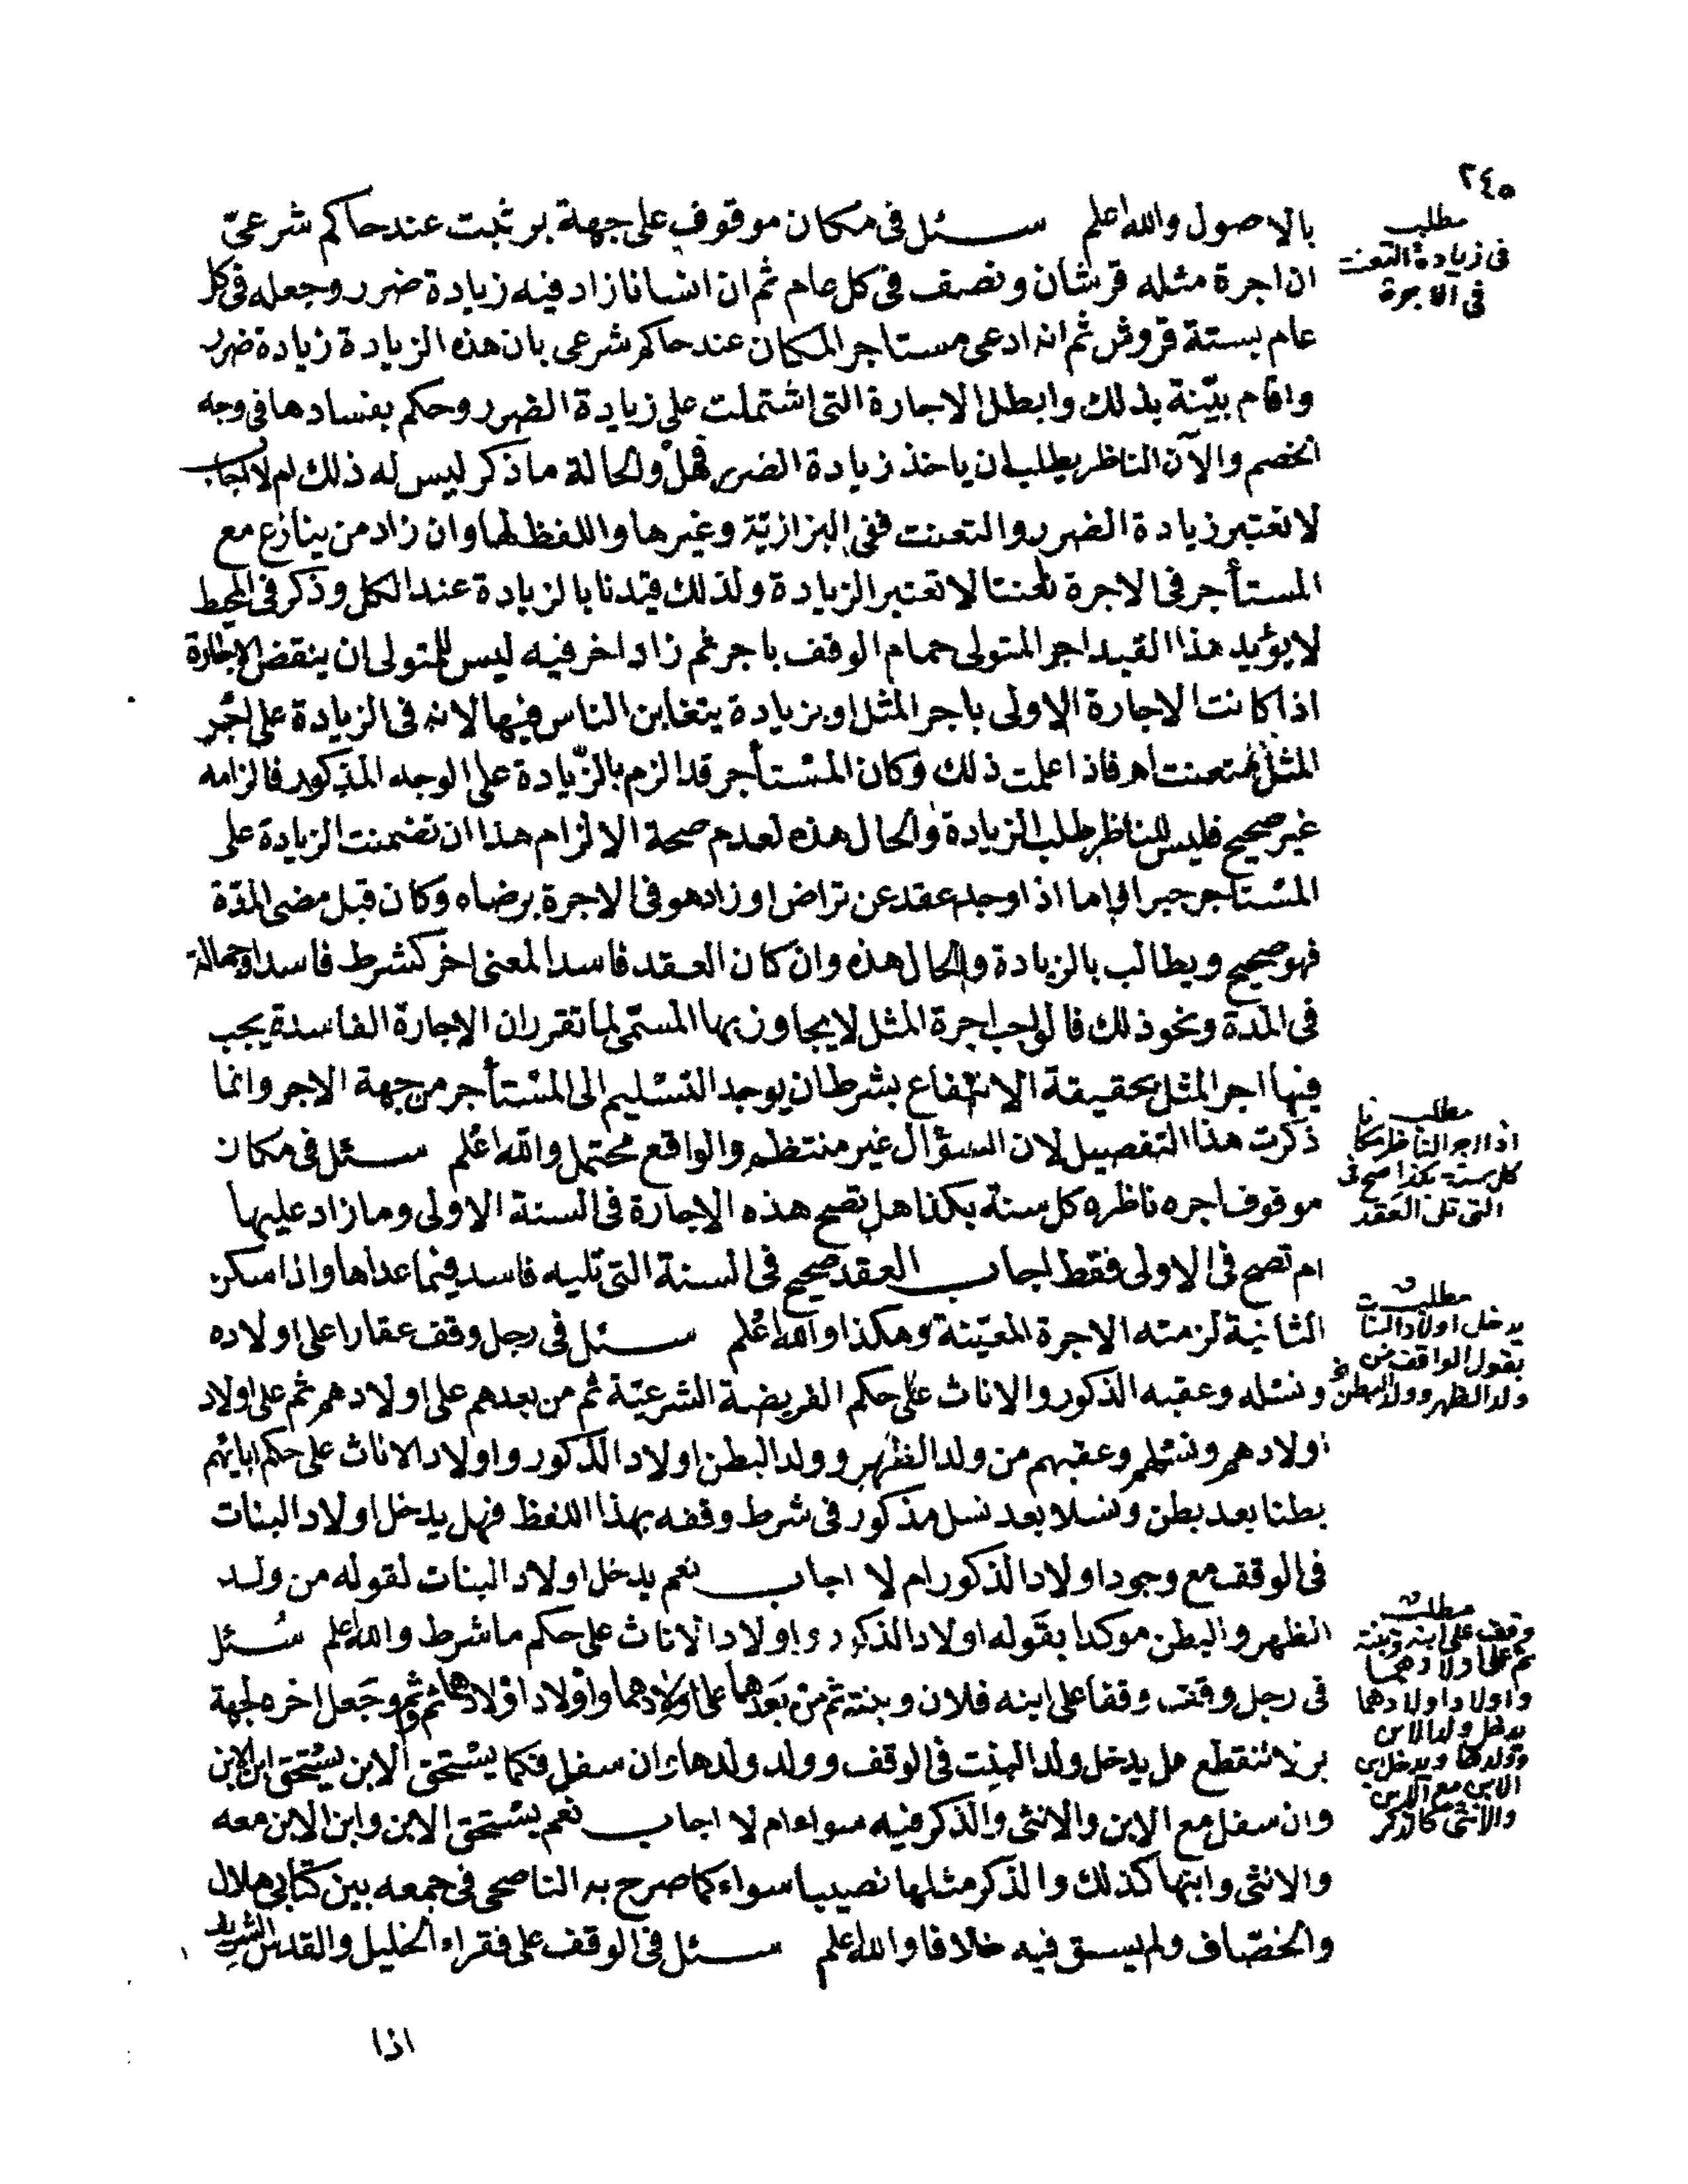 ٢٤٥
مطلب
فى زيادة التعنت
فى الاجرة
بالاصول والله اعلم سئل فى مكان موقوف على جهة بر ثبت عند حاكم شرعىّ
ان اجرة مثله قرشان ونصف فى كل عام ثم ان انسانا زاد فيه زيادة ضرر وجعله فى كل
عام بستة قروش ثم انه ادعى مستاجر المكان عند حاكم شرعى بان هذه الزيادة زيادة ضرر
واقام بيّنة بذلك وابطل الاجارة التى اشتملت على زيادة الضرر وحكم بفسادها فى وجه
الخصم والآن الناظر يطلب ان ياخذ زيادة الضرر فهل والحالة ما ذكر ليس له ذلك ام لا اجاب
لا تعتبر زيادة الضرر والتعنت ففى البزازيّة وغيرها واللفظ لها وان زاد من ينازع مع
المستأجر فى الاجرة تعنتا لا تعتبر الزيادة ولذلك قيّدنا بالزيادة عند الكل وذكر فى المحيط
لا يؤيد هذا القيد اجر المتولى حمام الوقف باجر ثم زاد اخر فيه ليس للمتولى ان ينقض الاجارة
اذا كانت الاجارة الاولى باجر المثل او بزيادة يتغابن الناس فيها لانه فى الزيادة على اجر
المثل متعنت اهـ فاذا علمت ذلك وكان المستأجر قد الزم بالزيادة على الوجه المذكور فالزامه
غير صحيح فليس للناظر طلب الزيادة والحال هذه لعدم صحة الالزام هذا ان تضمنت الزيادة على
المستاجر جبرا واما اذا وجد عقد عن تراض او زاد هو فى الاجرة برضاه وكان قبل مضى المدّة
فهو صحيح ويطالب بالزيادة والحال هذه وان كان العقد فاسدا لمعنى اخر كشرط فاسد او جهالة
فى المدة ونحو ذلك فالواجب اجرة المثل لا يجاوز بها المسمّى لما تقرر ان الاجارة الفاسدة يجب
فيها اجر المثل بحقيقة الانتفاع بشرط ان يوجد التسليم الى المستأجر من جهة الاجر وانما
ذكرت هذا التفصيل لان السؤال غير منتظم والواقع محتمل والله اعلم سئل فى مكان
مطلب
اذا اجر الناظر مكانا
كل سنة بكذا صح فى
التى تلى العقد
موقوف اجره ناظره كل سنة بكذا هل تصح هذه الاجارة فى السنة الاولى وما زاد عليها
ام تصح فى الاولى فقط اجاب العقد صحيح فى السنة التى تليه فاسد فيما عداها واذا سكن
الثانية لزمته الاجرة المعيّنة وهكذا والله اعلم سئل فى رجل وقف عقارا على اولاده
مطلب
يدخل اولاد البنات
بقول الواقف من
ولد الظهر وولد البطن
ونسله وعقبه الذكور والاناث على حكم الفريضة الشرعيّة ثم من بعدهم على اولادهم ثم على اولاد
اولادهم ونسلهم وعقبهم من ولد الظهر وولد البطن اولاد الذكور واولاد الاناث على حكم ابائهم
بطنا بعد بطن ونسلا بعد نسل مذكور فى شرط وقفه بهذا اللفظ فهل يدخل اولاد البنات
فى الوقف مع وجود اولاد الذكور ام لا اجاب نعم يدخل اولاد البنات لقوله من ولد
الظهر والبطن موكدا بقوله اولاد الذكور واولاد الاناث على حكم ما شرط والله اعلم سُئل
مطلب
وقف على ابنه وبنته
ثم على اولادهما
واولاد اولادهما
يدخل ولد الابن
وولدها ويدخل ابن
الابن مع الابن
والانثى كالذكر
فى رجل وقف وقفا على ابنه فلان وبنته ثم من بعدهما على اولادهما واولاد اولادهما ثم وثم وجعل اخره لجهة
بر لا تنقطع هل يدخل ولد البنت فى الوقف وولد ولدها وان سفل فكما يستحق الابن يستحق ابن الابن
وان سفل مع الابن والانثى والذكر فيه سواء ام لا اجاب نعم يستحق الابن وابن الابن معه
والانثى وابنها كذلك والذكر مثلها نصيبا سواء كما صرح به الناصحى فى جمعه بين كتابى هلال
والخصّاف ولم يسق فيه خلافا والله اعلم سئل فى الوقف على فقراء الخليل والقدس الشريف
اذا